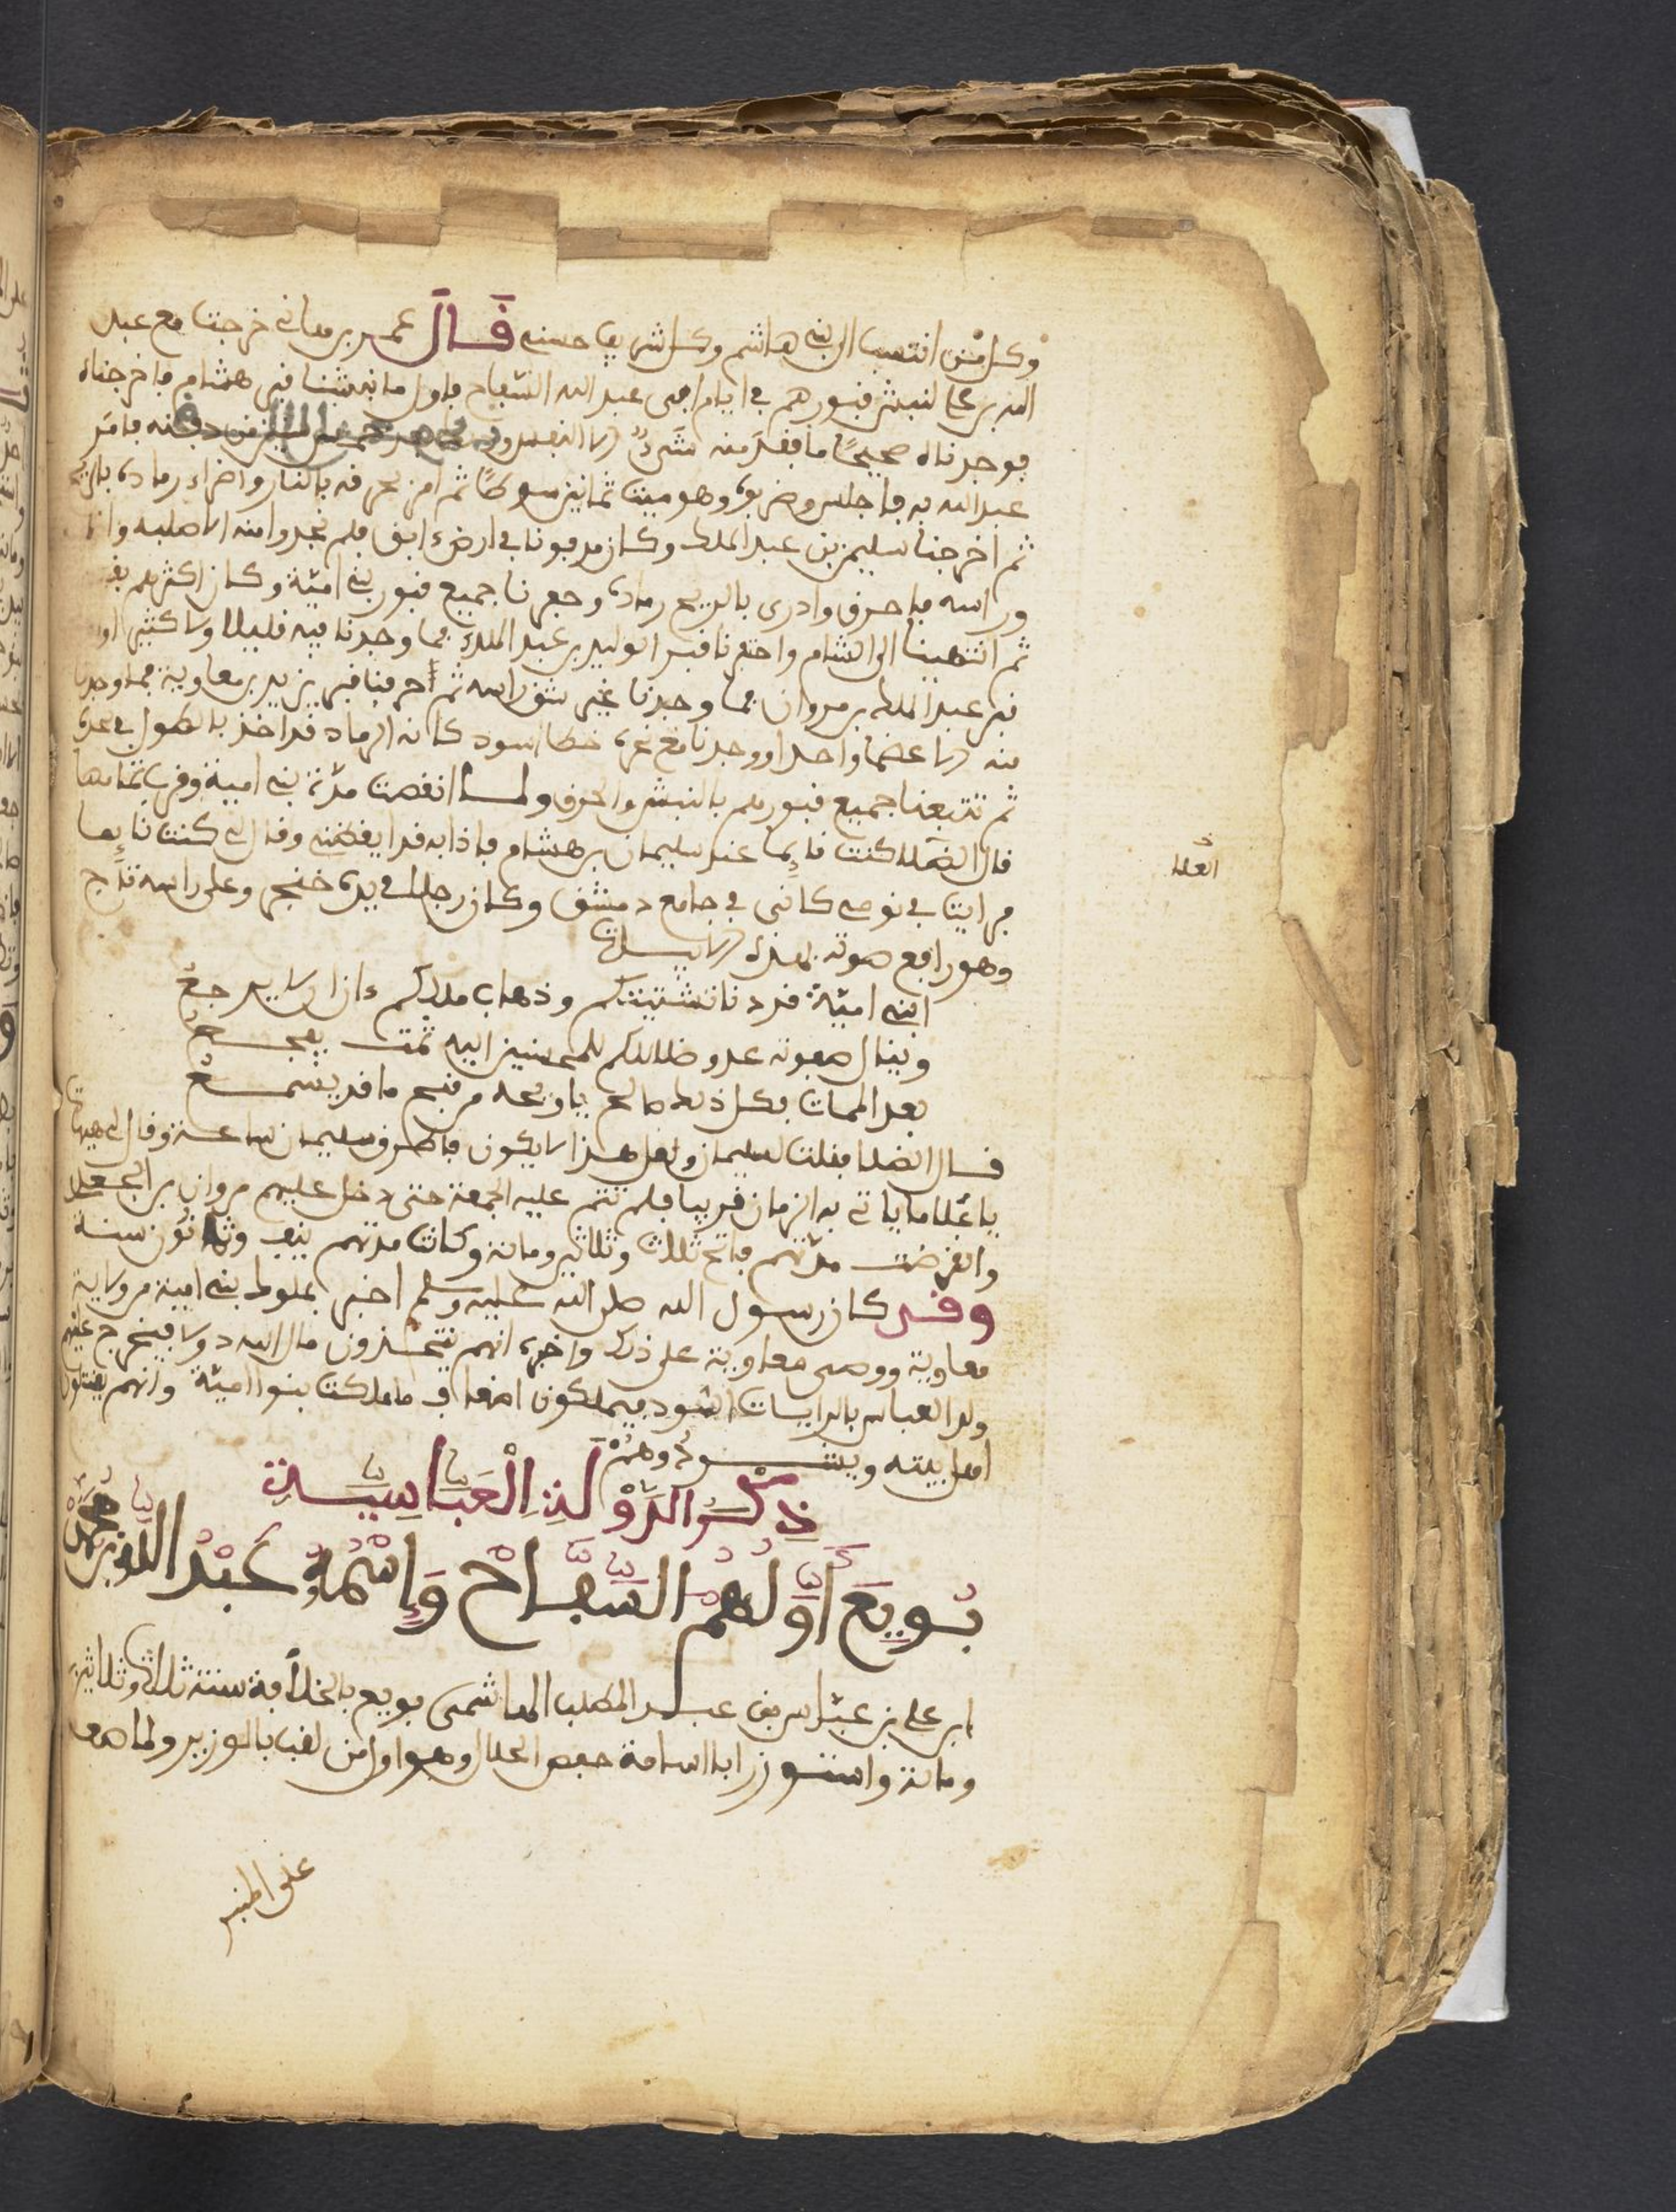 وكل من انتسب الى بني هاشم وكل شريف حسنى قال عمر بن هانى خرجنا مع عبد
الله بن علي لنبش قبورهم في ايام ابى عبد الله السفاح فاول ما نبشنا قبر هشام فاخرجناه
فوجدناه صحيحًا ما يفقد منه شىء الا فامر
عبد الله به فاجلس وضربه وهو ميت ثمانين سوطًا ثم امر بحرفه بالنار واذراء رماده بالريح
ثم اخرجنا سليمن بن عبد الملك وكان مدفونا في ارض دابق فلم نجد منه الا صلبه
وراسه فاحرق واذرى بالريح رماده وحفرنا جميع قبور بني امية وكان اكثرهم
ثم انتهينا الى الشام واحتفرنا قبر الوليد بن عبد الملك فما وجدنا فيه قليلا ولا كثيرا
قبر عبد الملك بن مروان فما وجدنا غير شق راسه ثم احرقنا قبر يزيد بن معاوية فما وجدنا
منه الا عضما واحدا ووجدنا مع نحره خطا اسود كانه الرماد قد اخذ بالطول في لحده
ثم تتبعنا جميع قبورهم بالنبش والحرق ولما انقضت مدة بني امية وقرب تمامها
قال العلا كنت نايما عند سليمان بن هشام فاذا به قد ايقضنى وقال لى كنت نايما
فرايت في نومى كانى في جامع دمشق وكان رجلا في يده خنجر وعلى راسه تاج
العلا
وهو رافع صوته بهذه الابيات
ابني امية قد دنا تشتيتكم وذهاب ملككم وان لا يرجع
وينال صفوته عدو ظالم للمحسنين اليه ثمت يفجع
بعد الممات بكل ذكر صالح يا ويحه من قبح ما قد يصنع
قال العلا فقلت لسليمان ولعل هذا لا يكون فاطرق سليمان ساعة وقال لي هيهات
يا علا ما ياتى به الزمان قريب فلم تتم عليه الجمعة حتى دخل عليهم مروان بن الجعد
وانقرضت مدتهم في ثلاث وثلاثين ومائة وكانت مدتهم نيف وثمانون سنة
وقد كان رسول الله صلى الله عليه وسلم اخبر بملوك بني امية من ولاية
معاوية ووصى معاوية على ذلك واخبره انهم يتخذون مال الله دولا فيخرج عليهم
ولد العباس بالرايات السود فيملكون اضعاف ما ملكت بنوا امية وانهم يقتلون
اهل بيته ويشردوهم
ذكر الدولة العباسية
بويع اولهم السفاح واسمه عبد الله بن محمد
ابن علي بن عباس بن عبد المطلب الهاشمى بويع بالخلافة سنة ثلاث وثلاثين
ومائة واستوزر ابا سلمة حفص الخلال وهو اول من لقب بالوزير ولما صعد
على المنبر